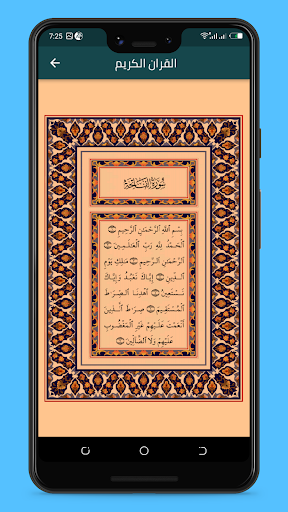 7:25
القران الكريم
سورة الفاتحة
بِسْمِ ٱللَّهِ ٱلرَّحْمَٰنِ ٱلرَّحِيمِ ۝
ٱلْحَمْدُ لِلَّهِ رَبِّ ٱلْعَٰلَمِينَ ۝
ٱلرَّحْمَٰنِ ٱلرَّحِيمِ ۝ مَٰلِكِ يَوْمِ
ٱلدِّينِ ۝ إِيَّاكَ نَعْبُدُ وَإِيَّاكَ
نَسْتَعِينُ ۝ ٱهْدِنَا ٱلصِّرَٰطَ
ٱلْمُسْتَقِيمَ ۝ صِرَٰطَ ٱلَّذِينَ
أَنْعَمْتَ عَلَيْهِمْ غَيْرِ ٱلْمَغْضُوبِ
عَلَيْهِمْ وَلَا ٱلضَّآلِّينَ ۝